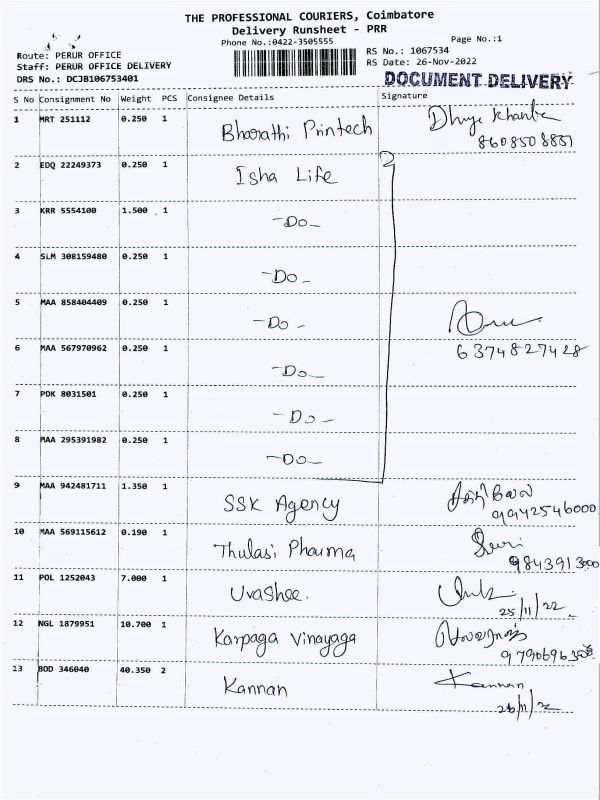 THE PROFESSIONAL COURIERS, Coimbatore
Delivery Runsheet - PRR
Phone No.:0422-3505555
Page No.:1
Route: PERUR OFFICE
Staff: PERUR OFFICE DELIVERY
DRS No.: DCJB106753401
RS No.: 1067534
RS Date: 26-Nov-2022
DOCUMENT DELIVERY
S No Consignment No Weight PCS Consignee Details Signature
1 MRT 251112 0.250 1 Bharathi Printech
8608508851
2 EDQ 22249373 0.250 1 Isha Life
3 KRR 5554100 1.500 1 -Do-
4 SLM 308159480 0.250 1 -Do-
5 MAA 858404409 0.250 1 -Do-
6 MAA 567970962 0.250 1 -Do- 6374827428
7 PDK 8031501 0.250 1 -Do-
8 MAA 295391982 0.250 1 -Do-
9 MAA 942481711 1.350 1 SSK Agency
9942546000
10 MAA 569115612 0.190 1 Thulasi Pharma
11 POL 1252043 7.000 1 Uvashee.
25/11/22
12 NGL 1879951 10.700 1 Karpaga Vinayaga
13 BOD 346040 40.350 2 Kannan Kannan